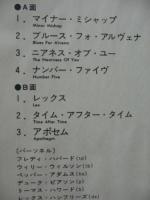 ●A面
1、マイナー・ミシャップ
Minor Mishap
2、ブルース・フォ・アルヴェナ
Blues For Alvena
3、ニアネス・オブ・ユー
The Nearness Of You
4、ナンバー・ファイヴ
Number Five
●B面
1、レックス
Lex
2、タイム・アフター・タイム
Time After Time
3、アポセム
Apothegm
〔パーソネル〕
フレディ・ハバード(tp)
ウィリー・ウィルソン(tb)
ペッパー・アダムス(bs)
デューク・ピアソン(p)
トーマス・ハワード(b)
レックス・ハンフリーズ(ds)